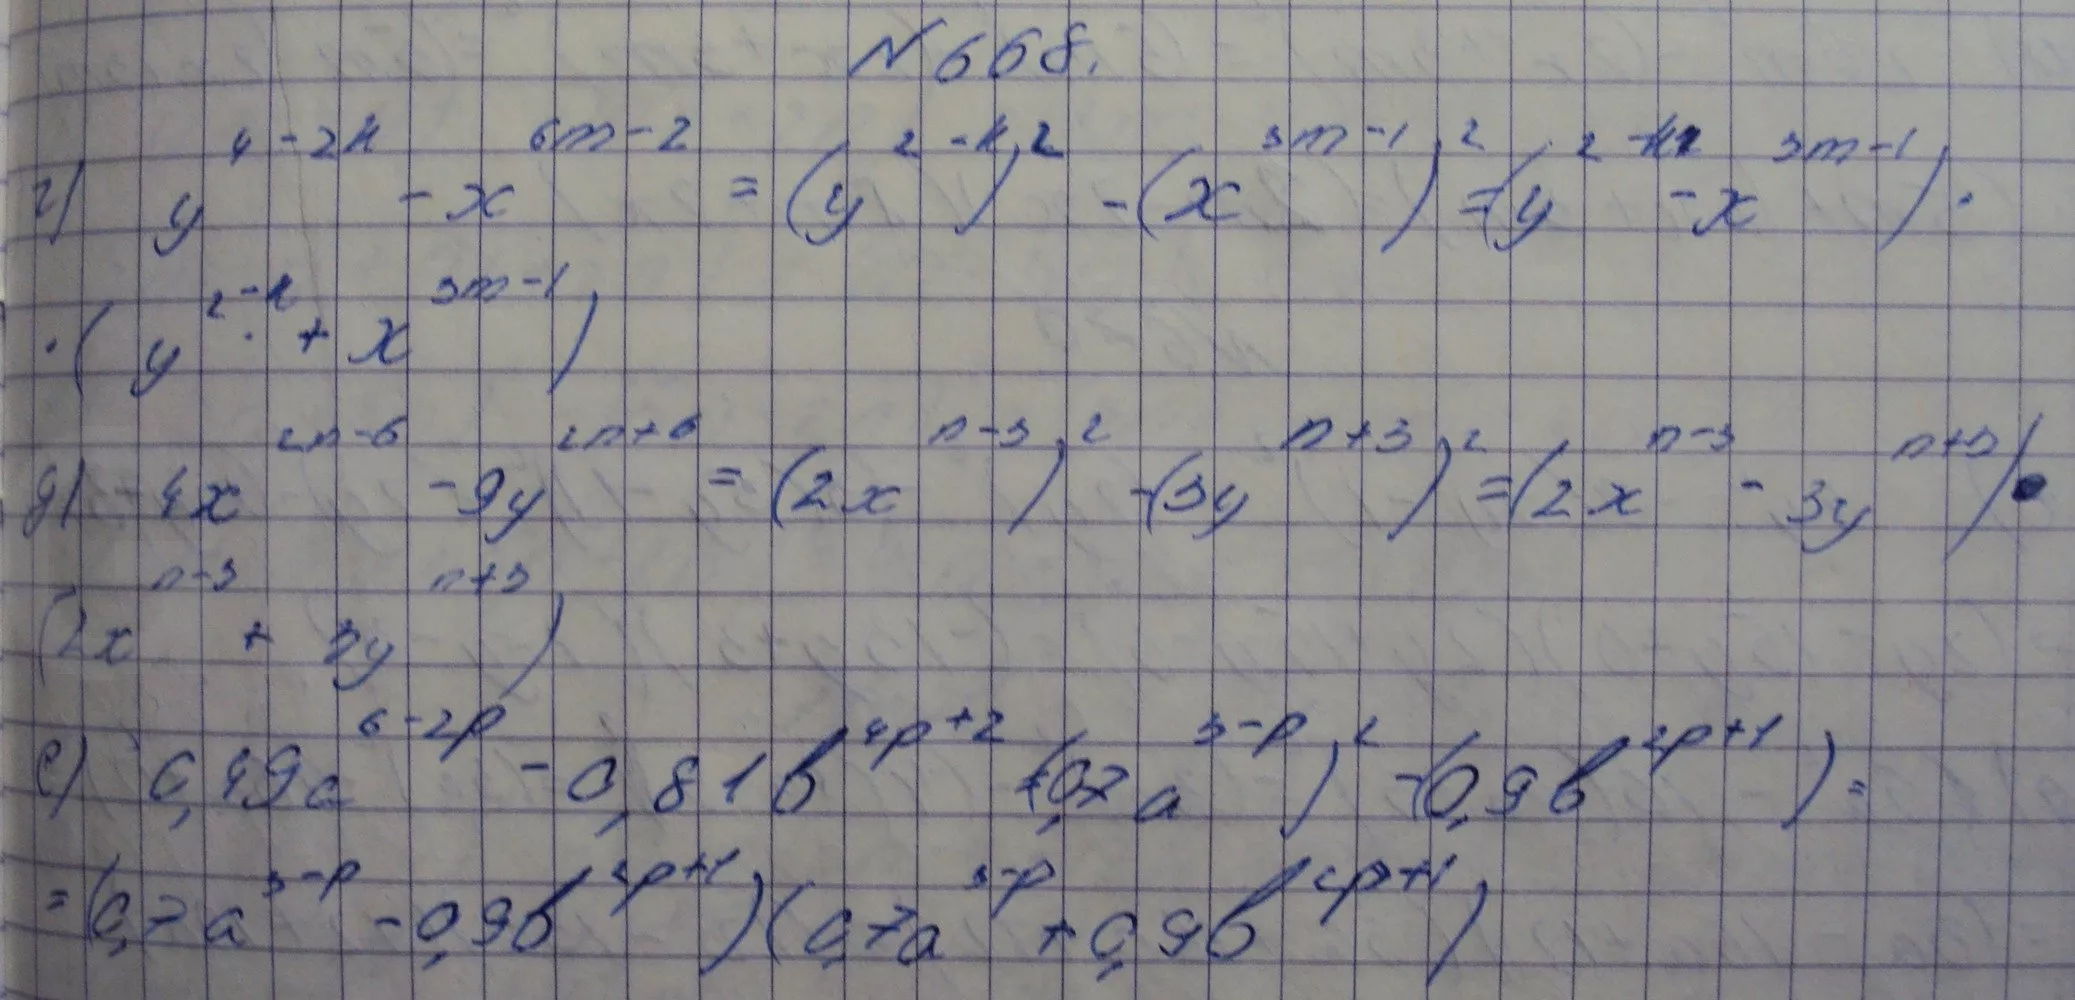 № 668.
г) y^{4-2k} - x^{6m-2} = (y^{2-k})^2 - (x^{3m-1})^2 = (y^{2-k} - x^{3m-1}) ·
· (y^{2-k} + x^{3m-1})
д) - 4x^{2n-6} - 9y^{2n+6} = (2x^{n-3})^2 - (3y^{n+3})^2 = (2x^{n-3} - 3y^{n+3}) ·
(2x^{n-3} + 3y^{n+3})
е) 0,49a^{6-2p} - 0,81b^{4p+2} = (0,7a^{3-p})^2 - (0,9b^{2p+1}) =
= (0,7a^{3-p} - 0,9b^{2p+1}) (0,7a^{3-p} + 0,9b^{2p+1})